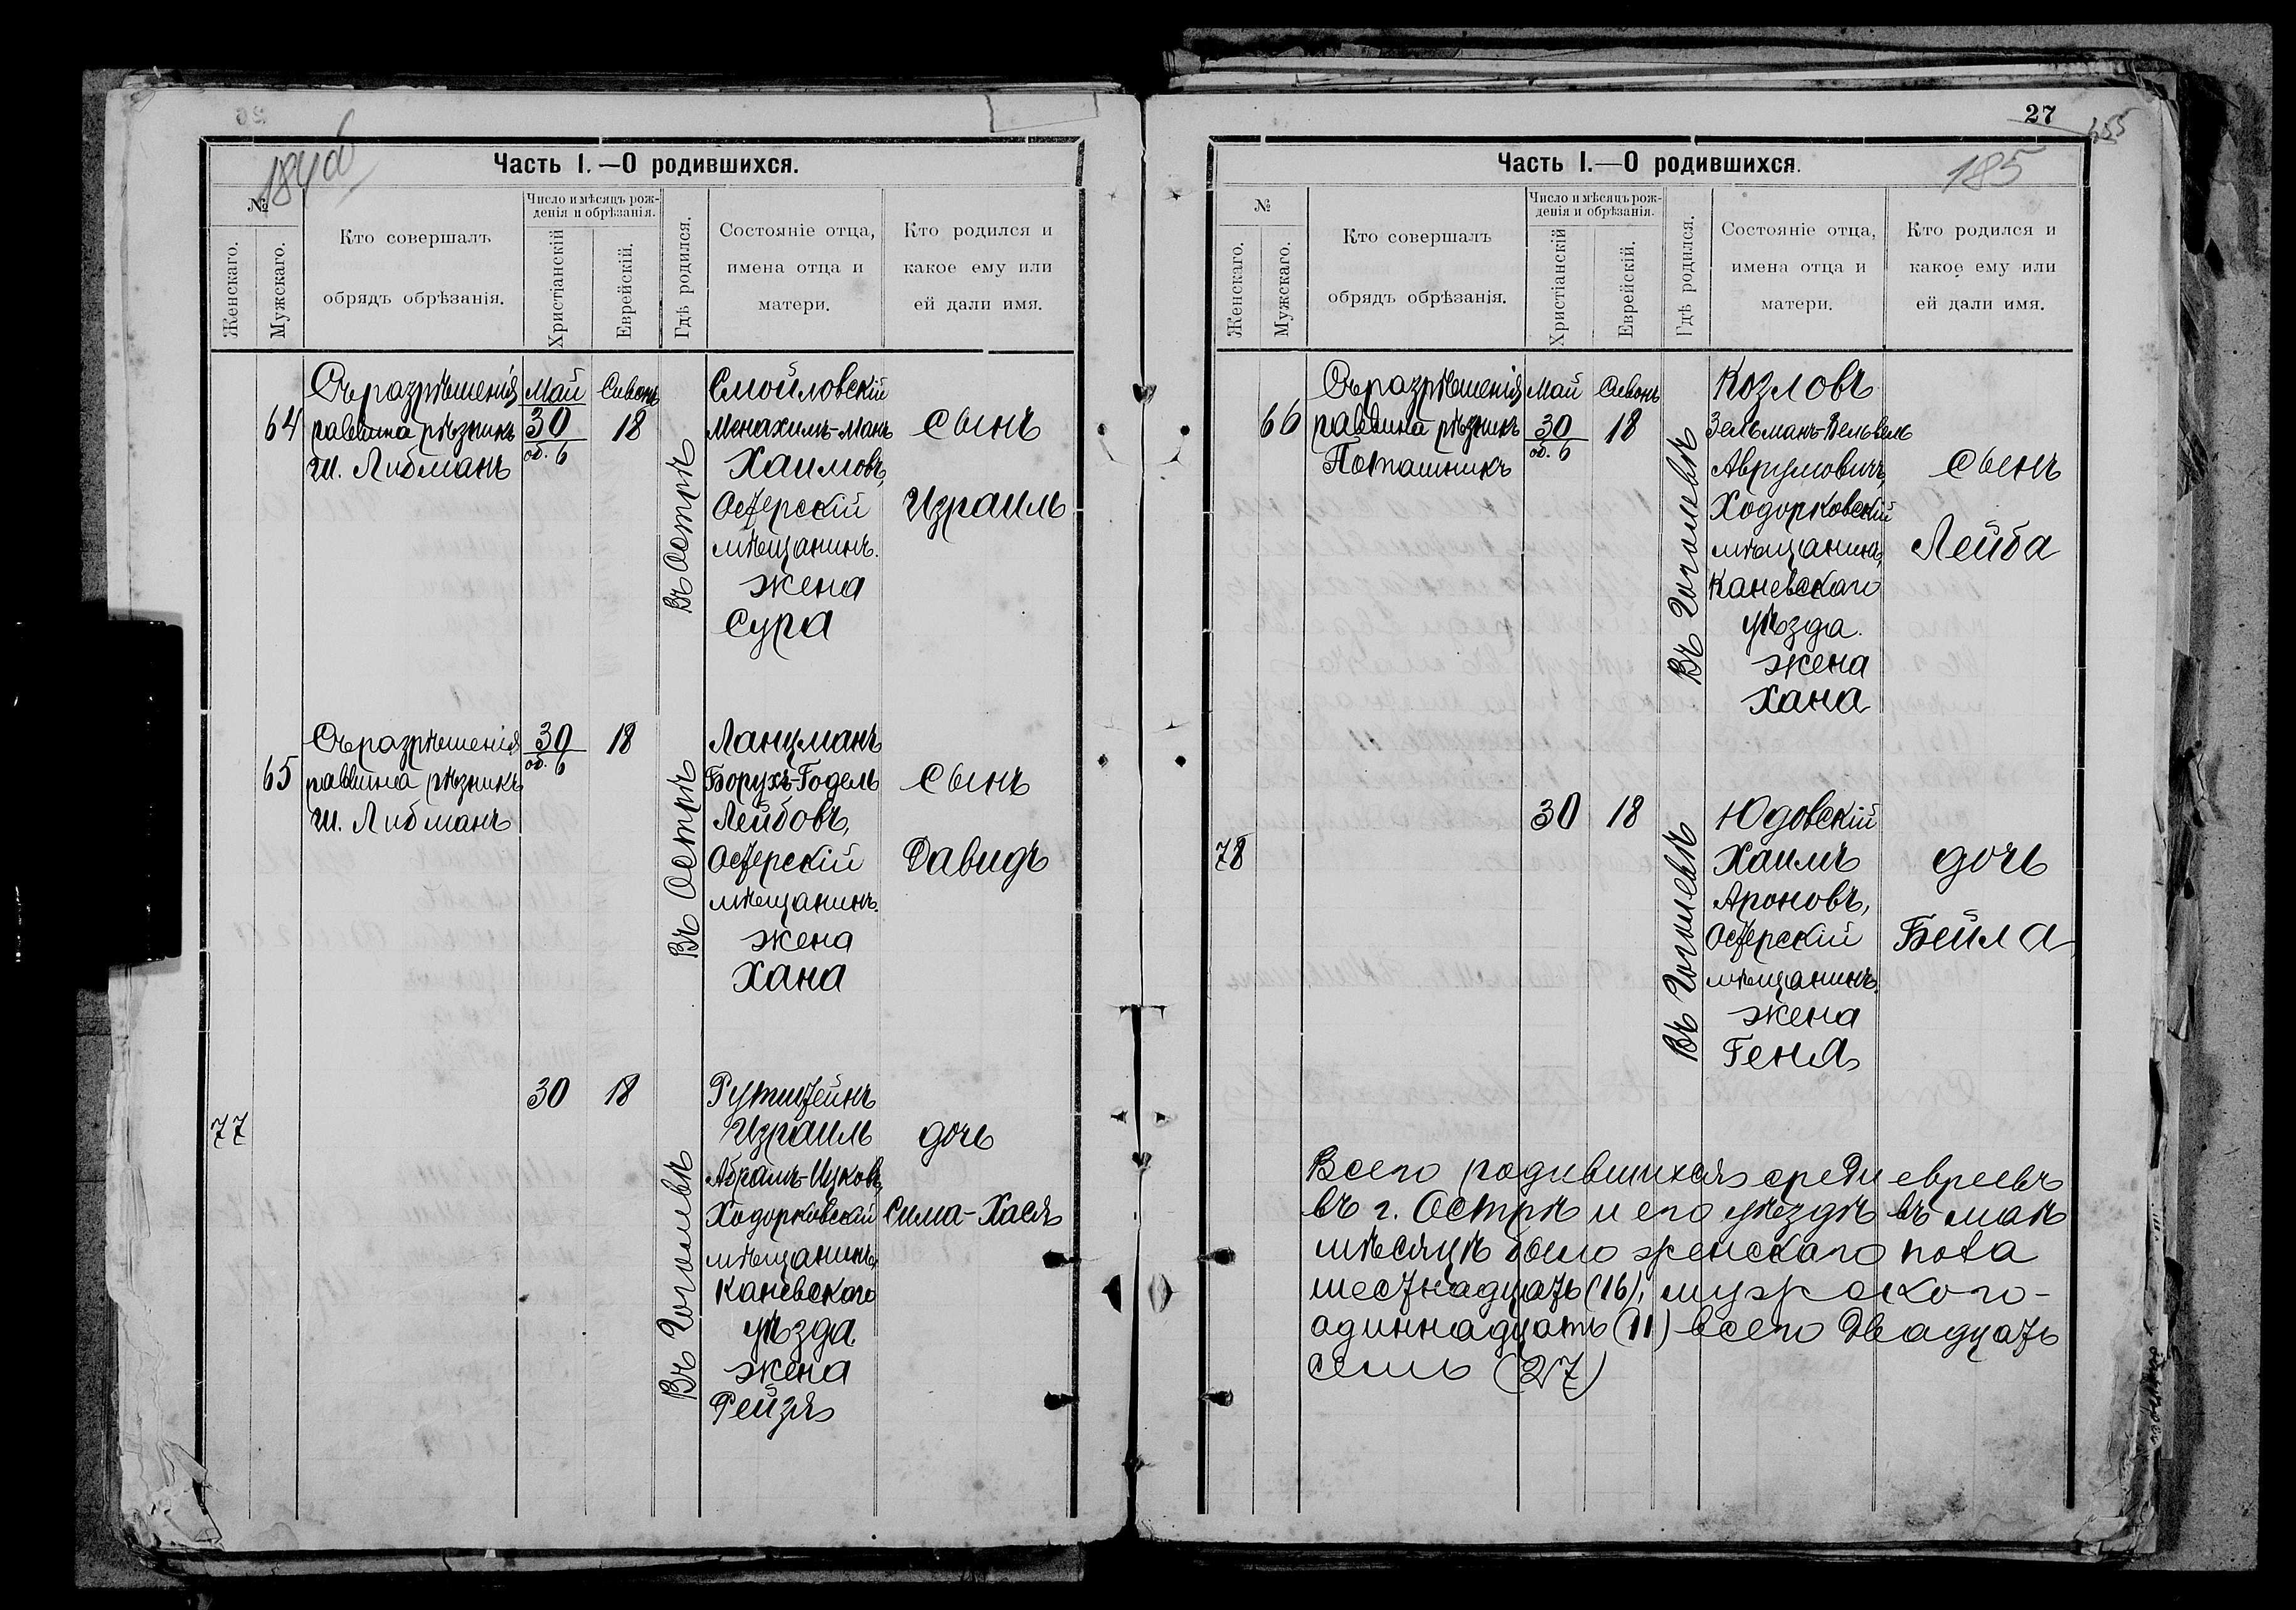 184об
Часть I.—О родившихся.
№
Женскаго.
Мужскаго.
Кто совершалъ
обрядъ обрѣзанія.
Число и мѣсяцъ рож-
денія и обрѣзанія.
Христіанскій
Еврейскій.
Гдѣ родился.
Состояніе отца,
имена отца и
матери.
Кто родился и
какое ему или
ей дали имя.
64
Съ разрѣшенія
раввина рѣзникъ
Ш. Либманъ
Май
30
об. 6
Сивонъ
18
Въ Острѣ
Смойловскій
Менахимъ-Манъ
Хаимовъ,
Остерскій
мѣщанинъ.
жена
Сура
сынъ
Израиль
65
Съ разрѣшенія
раввина рѣзникъ
Ш. Либманъ
30
об. 6
18
Въ Острѣ
Ланцманъ
Борухъ-Годель
Лейбовъ,
Остерскій
мѣщанинъ.
жена
Хана
сынъ
Давидъ
77
30
18
Въ Гоголевѣ
Рутштейнъ
Израиль
Абрамъ-Ицковъ,
Ходорковскій
мѣщанинъ,
Каневскаго
уѣзда
жена
Рейзя
дочь
Сима-Хася
27
185
Часть I.—О родившихся.
№
Женскаго.
Мужскаго.
Кто совершалъ
обрядъ обрѣзанія.
Число и мѣсяцъ рож-
денія и обрѣзанія.
Христіанскій
Еврейскій.
Гдѣ родился.
Состояніе отца,
имена отца и
матери.
Кто родился и
какое ему или
ей дали имя.
66
Съ разрѣшенія
раввина рѣзникъ
Поташникъ
Май
30
об. 6
Сивонъ
18
Въ Гоголевѣ
Козловъ
Зельманъ-Вельвель
Аврумовичъ,
Ходорковскій
мѣщанинъ,
Каневскаго
уѣзда.
жена
Хана
сынъ
Лейба
78
30
18
Въ Гоголевѣ
Юдовскій
Хаимъ
Ароновъ,
Остерскій
мѣщанинъ.
жена
Геня
дочь
Бейла
Всего родившихся среди евреевъ
въ г. Острѣ и его уѣздѣ въ маѣ
мѣсяцѣ было женскаго пола
шестнадцать (16), мужского -
одиннадцать (11) всего двадцать
семь (27)